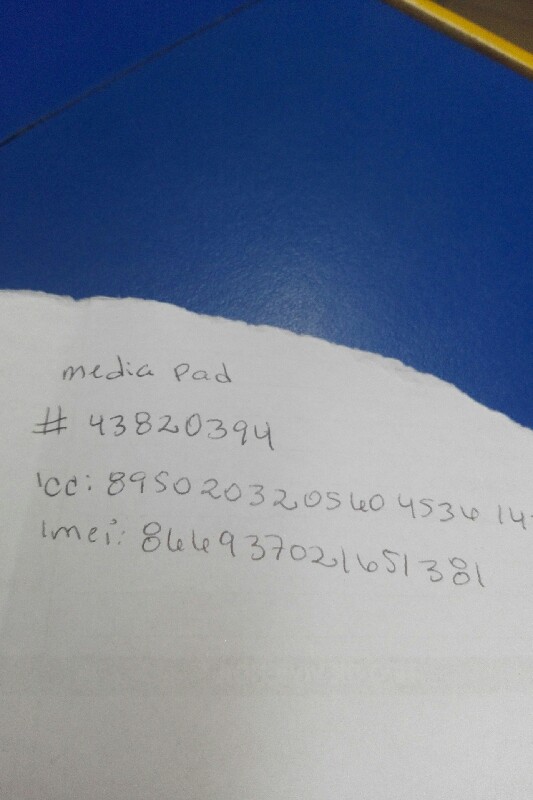 media pad
# 43820394
icc: 8950203205604536 14
imei: 866937021651381